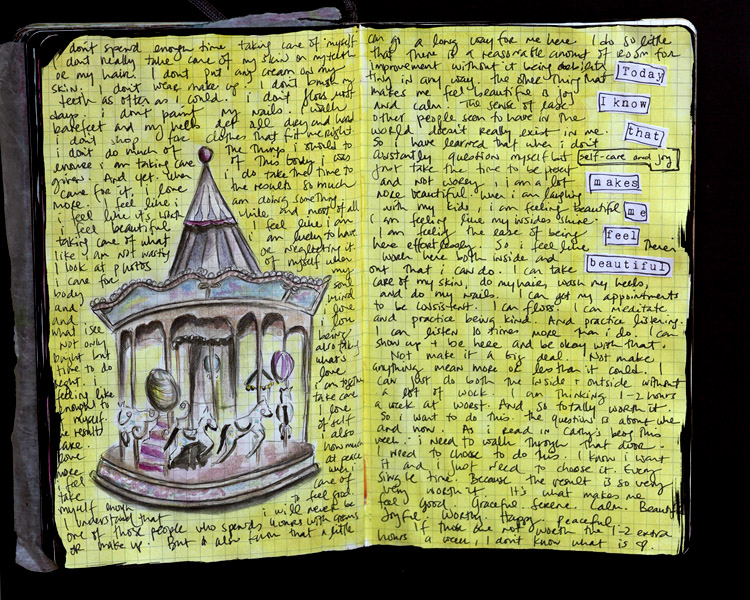 i don't spend enough time taking care of myself
i dont really take care of my skin or my teeth
or my hair. I dont put any cream on my
skin. I don't wear make up. I don't brush my
teeth as often as I could. i don't floss most
days. i don't paint my nails. I walk
barefeet and my heels get all dry and hard
i don't shop for clothes that fit me right
i don't do much of the things i should to
ensure i am taking care of this body i was
given. And yet. When i do take the time to
care for it, i love the results so much
more. i feel like i am doing something
i feel like it's worth while and most of all
i feel beautiful I feel like i am
taking care of what i am lucky to have
like i am not nasty or neglecting it.
I look at photos of myself when
I care for my
body soul
and mind
and i love
what i see i love
Not only being
bought but also taking
time to do what's
right. i love
feeling like i am together
brought to take care
myself. i love
the results of self
take i also
love how much
more at peace
i feel when i
take care of
myself enough to feel good.
I understand that i will never be
one of those people who spends hours with creams
or make up. But i also know that a little
can go a long way for me here. I do so little
that there is a reasonable amount of room for
improvement without it being debilita
ting in any way. The other thing that
makes me feel beautiful is joy
and calm. The sense of ease
other people seem to have in the
world doesn't really exist in me.
So i have learned that when i don't
constantly question myself but
just take the time to be present
and not worry, i am a lot
more beautiful. when i am laughing
with my kids, i am feeling beautiful
i am feeling like my insides shine.
I am feeling the ease of being
here effortlessly. So i feel like there's
work here both inside and
out that i can do. I can take
care of my skin, do my hair, wash my heels,
and do my nails. I can get my appointments
to be consistent. I can floss. I can meditate
and practice being kind. And practice listening.
I can listen 10 times more than i do. I can
show up + be here and be okay with that.
Not make it a big deal. Not make
anything mean more or less than it could. I
can just do both the inside + outside without
a lot of work. I am thinking 1-2 hours
a week at worst. And so totally worth it.
So i want to do this. the question is about why
and now. As i read in Cathy's blog this
week: i need to walk through that door.
I need to choose to do this. I know i want
it and i just need to choose it. Every
single time. Because the result is so very
very worth it. It's what makes me
feel Good. Graceful. Serene. Calm. Beautiful
Joyful. Worthy. Happy. Peaceful.
If those are not worth the 1-2 extra
hours a week, I don't know what is
Today
I know
that
self-care and joy
makes
me
feel
beautiful